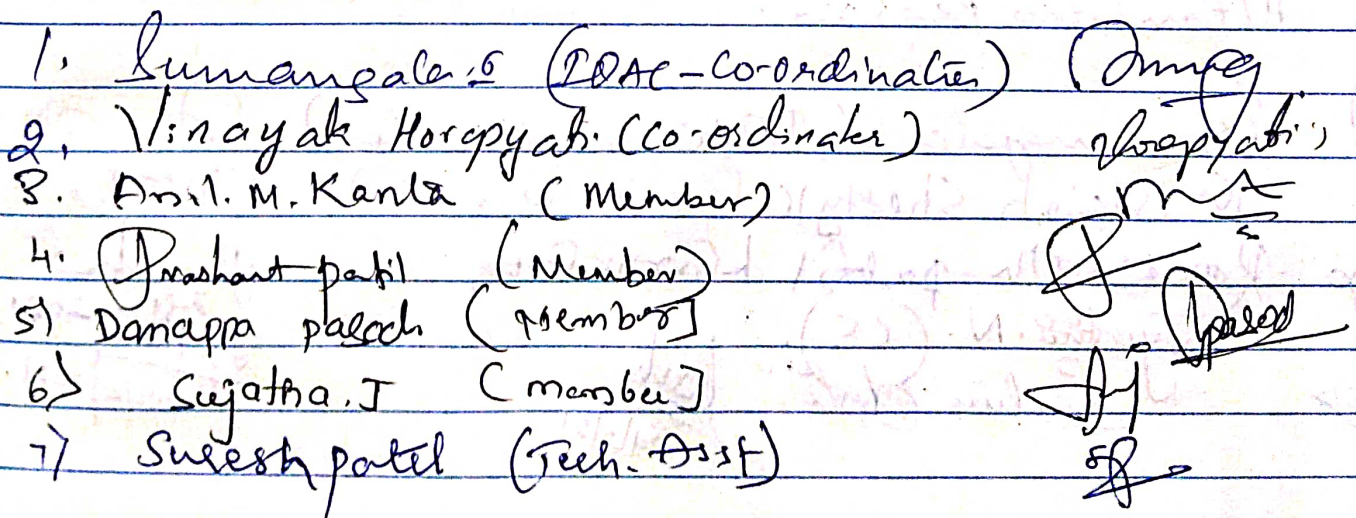 1. Sumangala.G (IQAC-Co-ordinator)
2. Vinayak Horapyati (Co-ordinator) Vhorapyati
3. Anil.M.Kanta (Member)
4. Prashant patil (Member)
5) Danappa pasodi (Member] Dpasod
6) Sujatha.J (member]
7) Suresh patil (Tech.Asst)